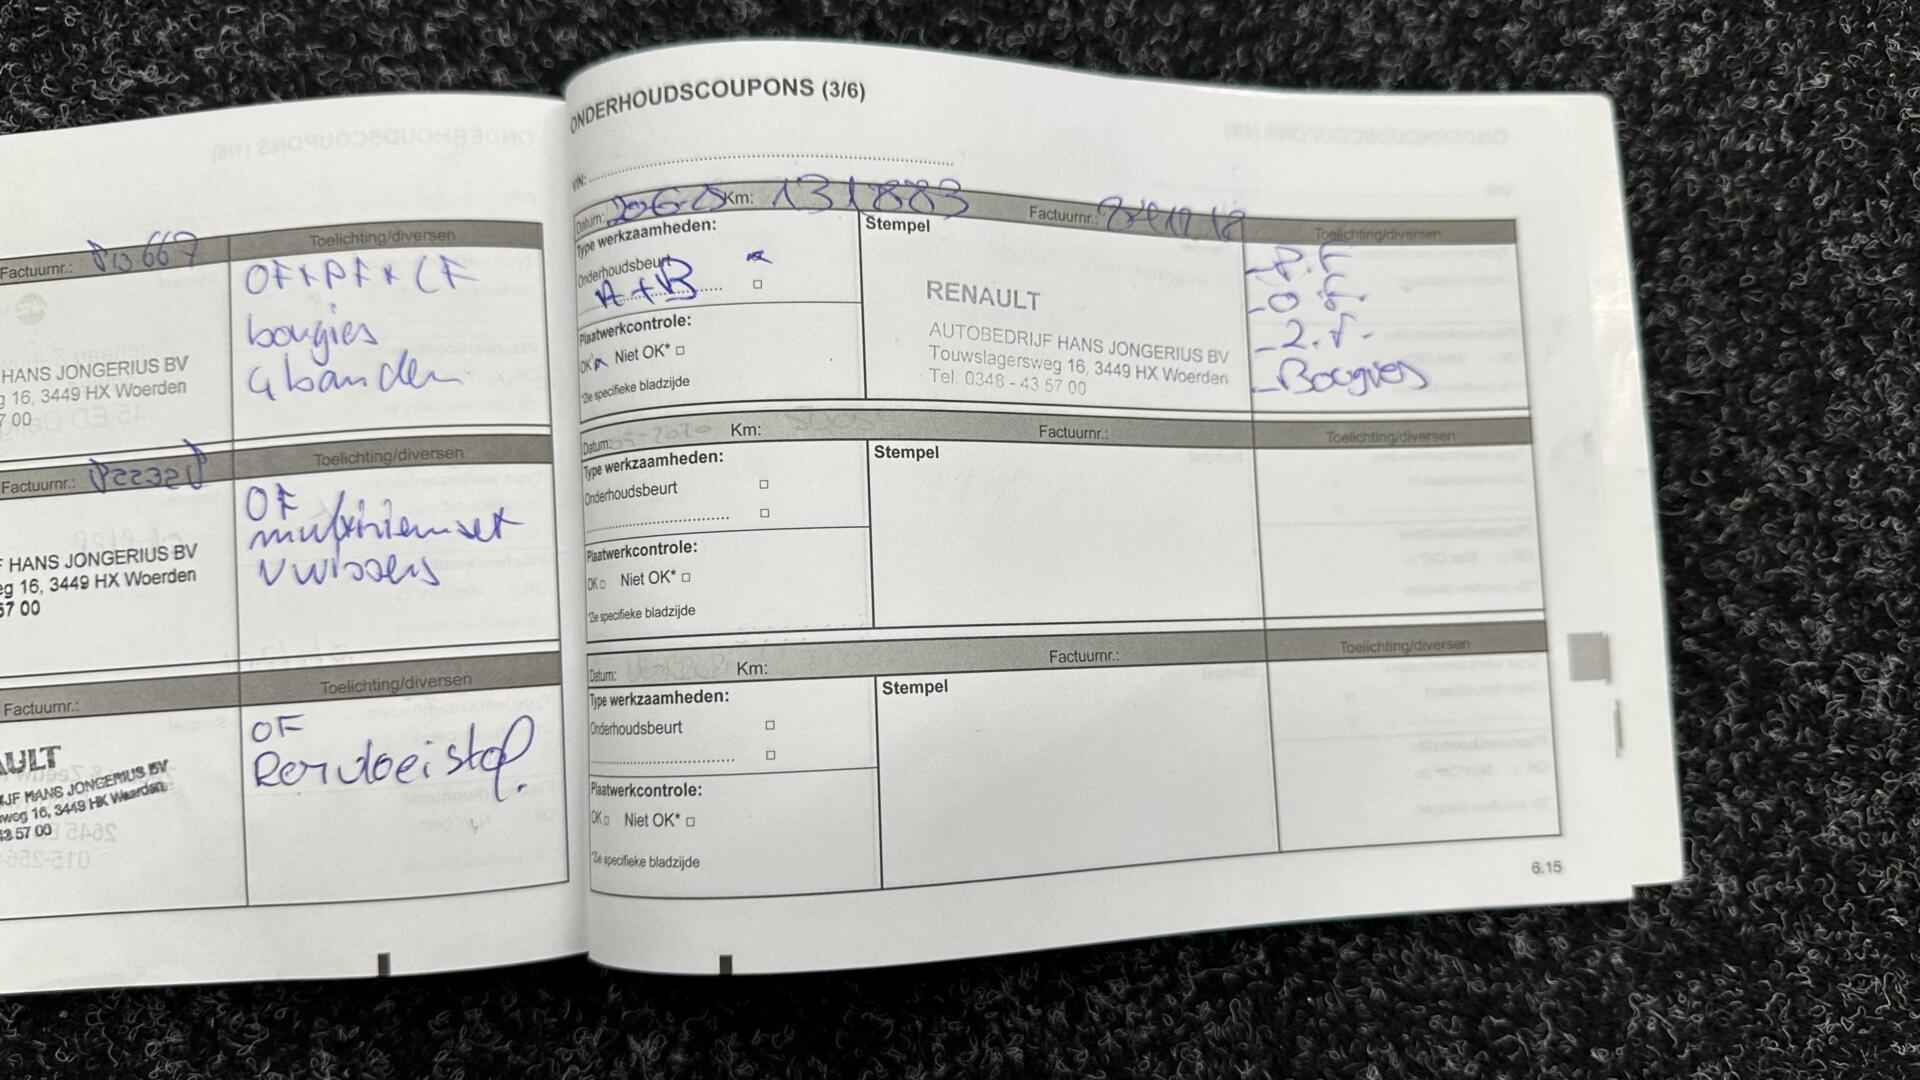 Factuurnr.:
Toelichting/diversen
OF+PF+CF
bougies
4 banden
HANS JONGERIUS BV
g 16, 3449 HX Woerden
7 00
Factuurnr.:
Toelichting/diversen
OF
multiriemset
V wissers
F HANS JONGERIUS BV
eg 16, 3449 HX Woerden
57 00
Factuurnr.:
Toelichting/diversen
OF
Remvloeistof
AULT
IJF HANS JONGERIUS BV
weg 16, 3449 HX Woerden
43 57 00
ONDERHOUDSCOUPONS (3/6)
VIN:
Datum: Km: 131883 Factuurnr.: Toelichting/diversen
Type werkzaamheden:
Onderhoudsbeurt
A+B
Plaatwerkcontrole:
OK Niet OK*
*Zie specifieke bladzijde
Stempel
RENAULT
AUTOBEDRIJF HANS JONGERIUS BV
Touwslagersweg 16, 3449 HX Woerden
Tel. 0348 - 43 57 00
- P.F
- O F.
- Bougies
Datum: Km: Factuurnr.: Toelichting/diversen
Type werkzaamheden:
Onderhoudsbeurt
Plaatwerkcontrole:
OK Niet OK*
*Zie specifieke bladzijde
Stempel
Datum: Km: Factuurnr.: Toelichting/diversen
Type werkzaamheden:
Onderhoudsbeurt
Plaatwerkcontrole:
OK Niet OK*
*Zie specifieke bladzijde
Stempel
6.15